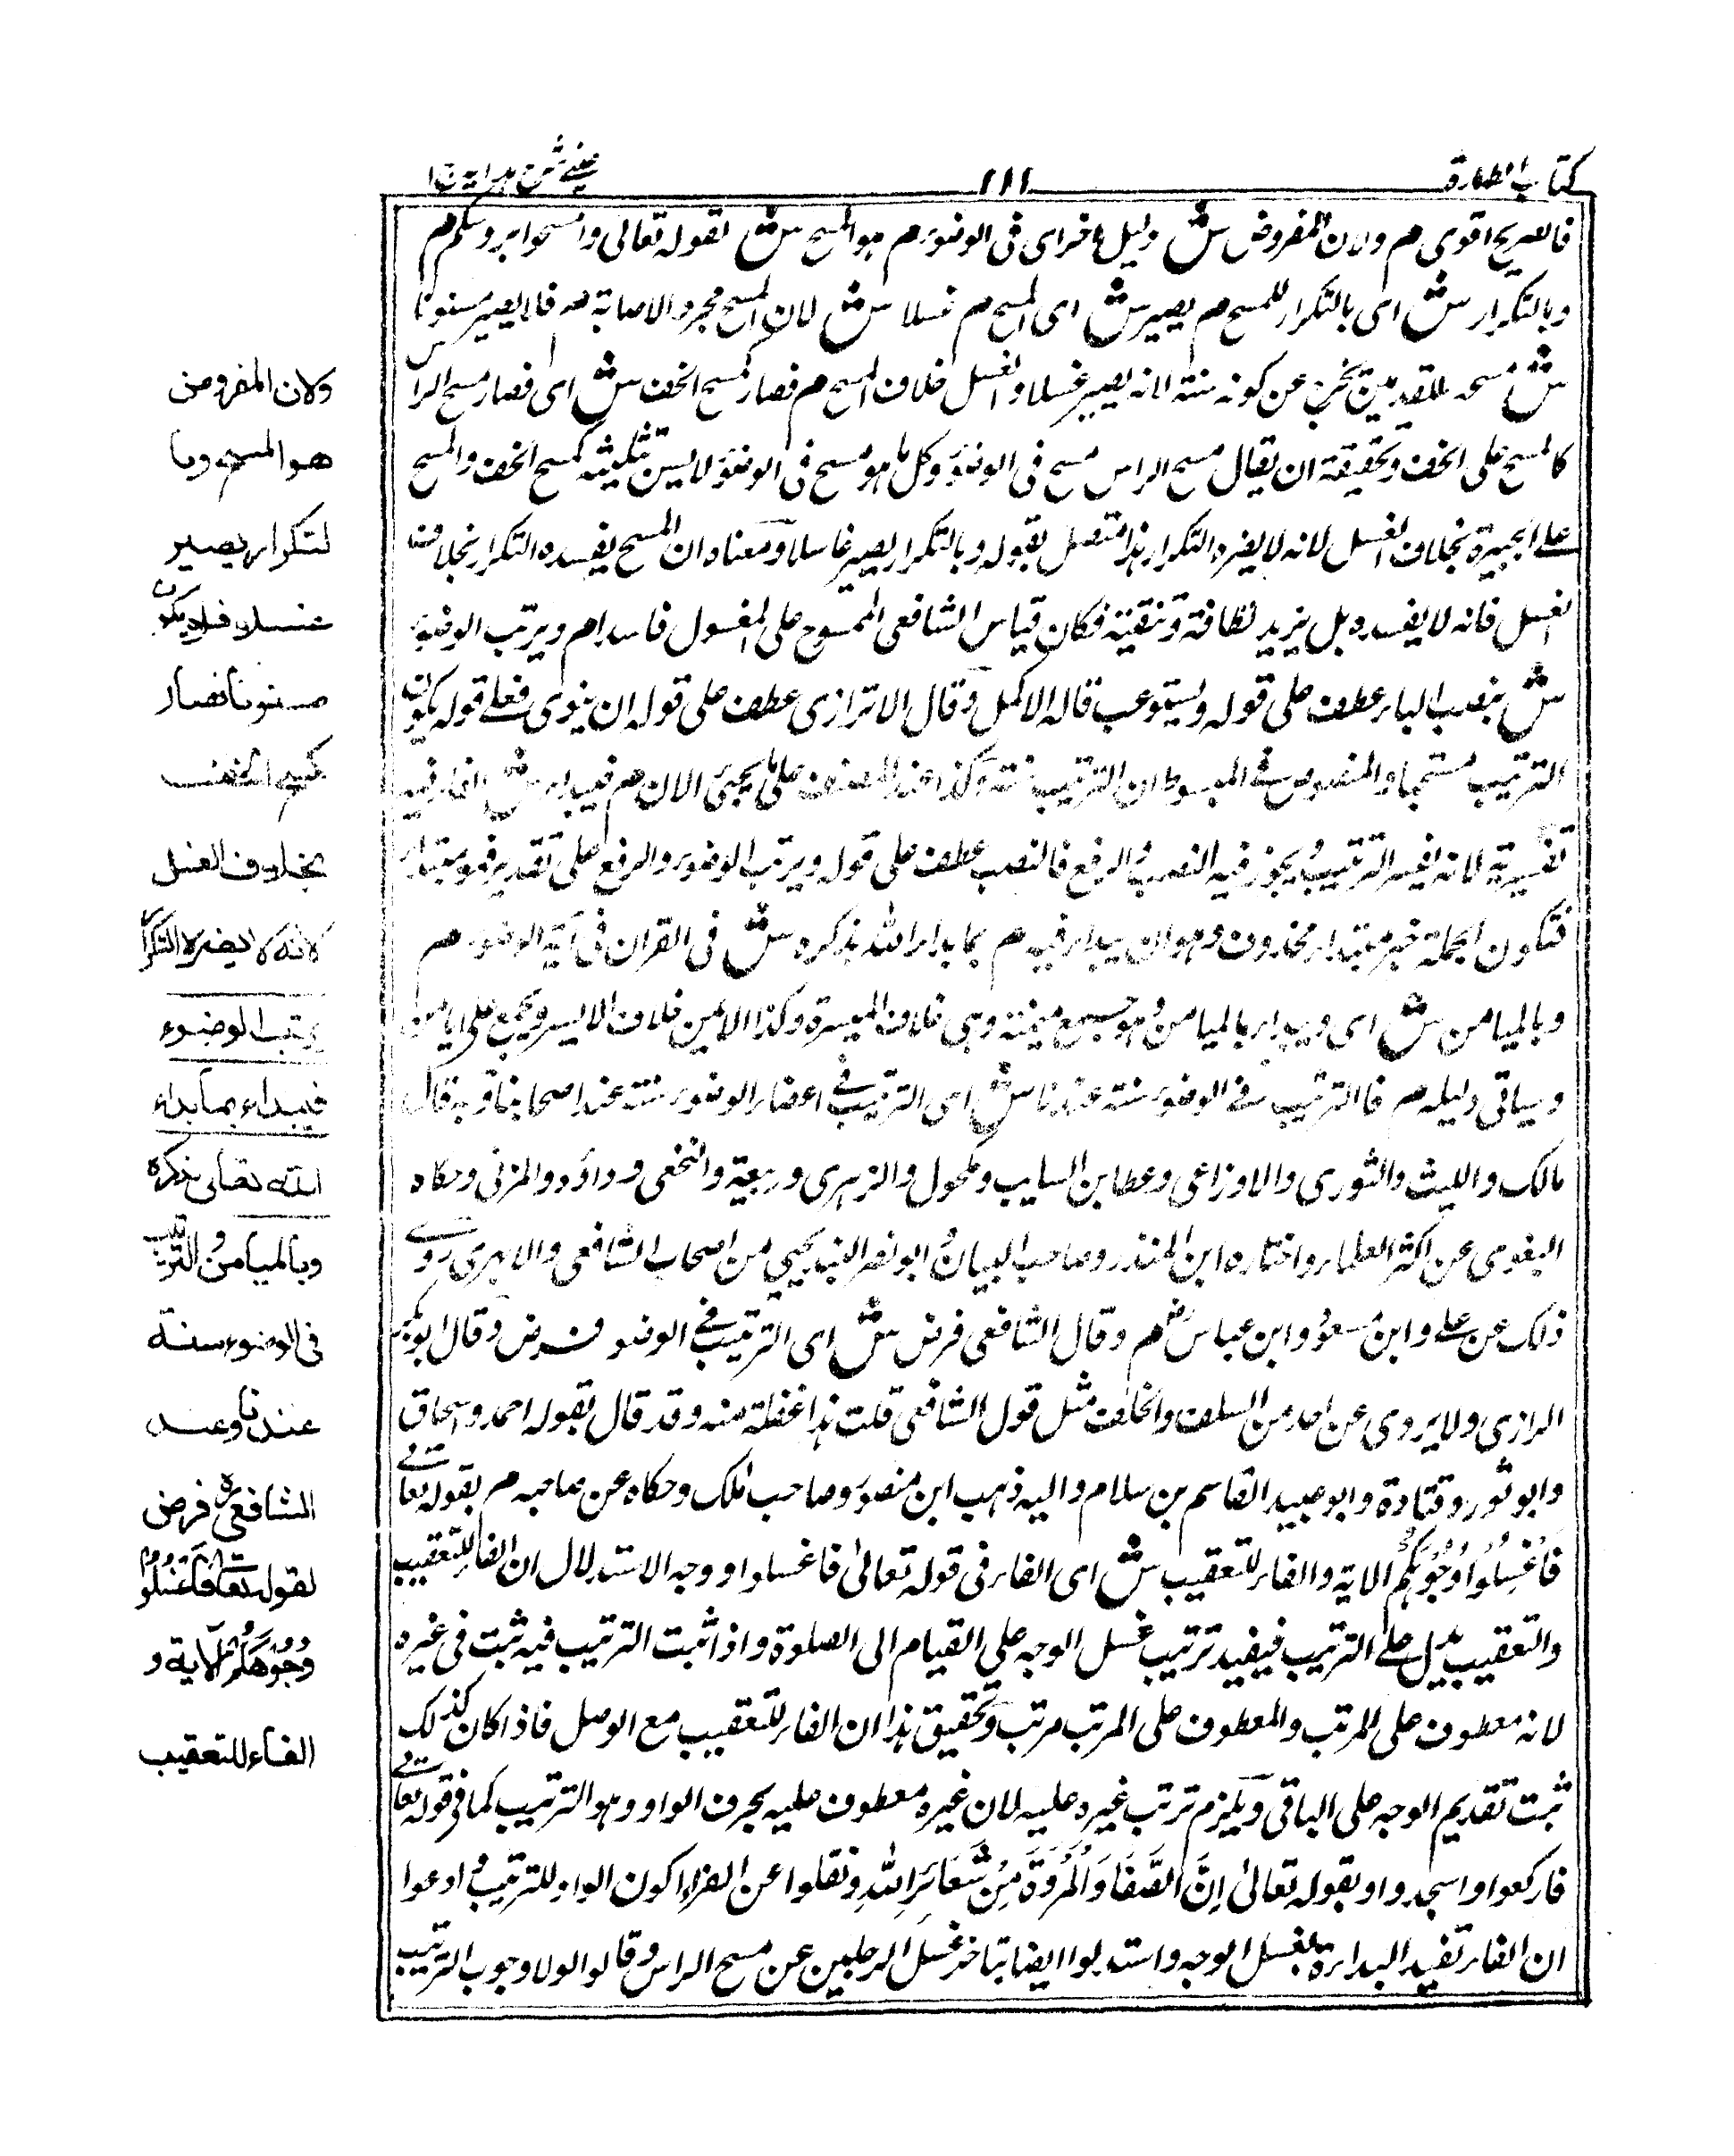 كتاب الطهارة
١١١
عينے شرح هداية ج ١
فالصريح اقوى م ولان المفروض ش دليل اخر اى فى الوضوء م هو المسح ش لقوله تعالى وامسحوا برءوسكم م
وبالتكرار ش اى بالتكرار للمسح م يصير ش اى المسح م غسلا ش لان المسح مجرد الاصابة م فلا يصير مسنونا
ش مسحه للقدمين يخرج عن كونه سنة لانه يصير غسلا والغسل خلاف المسح م فصار كمسح الخف ش اى فصار مسح الراس
كالمسح على الخف وتحقيقه ان يقال مسح الراس مسح فى الوضوء وكل ما هو مسح فى الوضوء لا يسن تثليثه كمسح الخف والمسح
على الجبيرة بخلاف الغسل لانه لا يضره التكرار هذا متصل بقوله وبالتكرار يصير غاسلا ومعناه ان المسح يفسده التكرار بخلاف
الغسل فانه لا يفسده بل يزيد نظافة وتنقية فكان قياس الشافعى الممسوح على المغسول فاسدا م ويرتب الوضوء
ش بنصب الباء عطف على قوله ويستوعب قاله الاكمل وقال الاترازى عطف على قوله ان ينوى فعلے قوله يكون
الترتيب مستحبا والمنصوص فى المبسوط ان الترتيب سنة وكذا عند المصنف على ما يجئ الان م فيبداء ش الفاء فيه
تفسيرية لانه يفسر الترتيب ويجوز فيه النصب والرفع فالنصب عطف على قوله ويرتب الوضوء والرفع على تقدير فهو يبتداء
فتكون الجملة خبر مبتداء محذوف وهو ان يبداء فيه م بما بداء الله بذكره ش فى القران فى آية الوضوء م
وبالميامن ش اى ويبداء بالميامن وهو جمع ميمنة وهى خلاف الميسرة وكذا الايمن خلاف الايسر ويجمع على ايامن
وسياتى دليله م فالترتيب فى الوضوء سنة عندنا ش اى الترتيب فى اعضاء الوضوء سنة عند اصحابنا وبه قال
مالك والليث والثورى والاوزاعى وعطا بن السايب ومكحول والزهرى وربيعة والنخعى وداؤد والمزنى وحكاه
البغوى عن اكثر العلماء واختاره ابن المنذر وصاحب البيان وابو نصر البندنيجى من اصحاب الشافعى والابهرى روے
ذلك عن على وابن مسعود وابن عباس رضى م وقال الشافعى فرض ش اى الترتيب فى الوضوء فرض وقال ابو بكر
الرازى ولا يروى عن احد من السلف والخلف مثل قول الشافعى قلت هذا غفلة منه وقد قال بقوله احمد واسحاق
وابو ثور وقتادة وابو عبيد القاسم بن سلام واليه ذهب ابن منصور وصاحب مالك وحكاه عن صاحبه م بقوله تعالے
فَاغْسِلُوا وُجُوهَكُمْ الاية والفاء للتعقيب ش اى الفاء فى قوله تعالىٰ فاغسلوا ووجه الاستدلال ان الفاء للتعقيب
والتعقيب يدل على الترتيب فيفيد ترتيب غسل الوجه على القيام الى الصلوة واذا ثبت الترتيب فيه ثبت فى غيره
لانه معطوف على المرتب والمعطوف على المرتب مرتب وتحقيق هذا ان الفاء للتعقيب مع الوصل فاذا كان كذلك
ثبت تقديم الوجه على الباقى ويلزم ترتب غيره عليه لان غيره معطوف عليه بحرف الواو وهو الترتيب كما فى قوله تعالے
فاركعوا واسجدوا وبقوله تعالىٰ اِنَّ الصَّفَا وَالْمَرْوَةَ مِنْ شَعَائِرِ اللهِ ونقلوا عن الفراء كون الواو للترتيب وادعوا
ان الفاء تفيد البداءة بغسل الوجه واستدلوا ايضا بتاخر غسل الرجلين عن مسح الراس وقالوا لولا وجوب الترتيب
ولان المفروض
هو المسح وبا
لتكرار يصير
غسلا فلا يكون
مسنونا فصار
كمسح الخف
بخلاف الغسل
لانه لا يضره التكرار
يرتب الوضوء
فيبداء بما بداء
الله تعالى بذكره
وبالميامن والترتيب
فى الوضوء سنة
عندنا وعند
الشافعى رح فرض
لقوله تعالے فَاغْسِلُوْا
وُجُوْهَكُمْ الآية و
الفاء للتعقيب